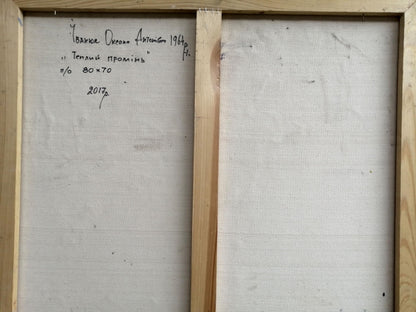 Оксана Антонівна 1964р
н.
„Теплий промінь"
п/о 80×70
2017р